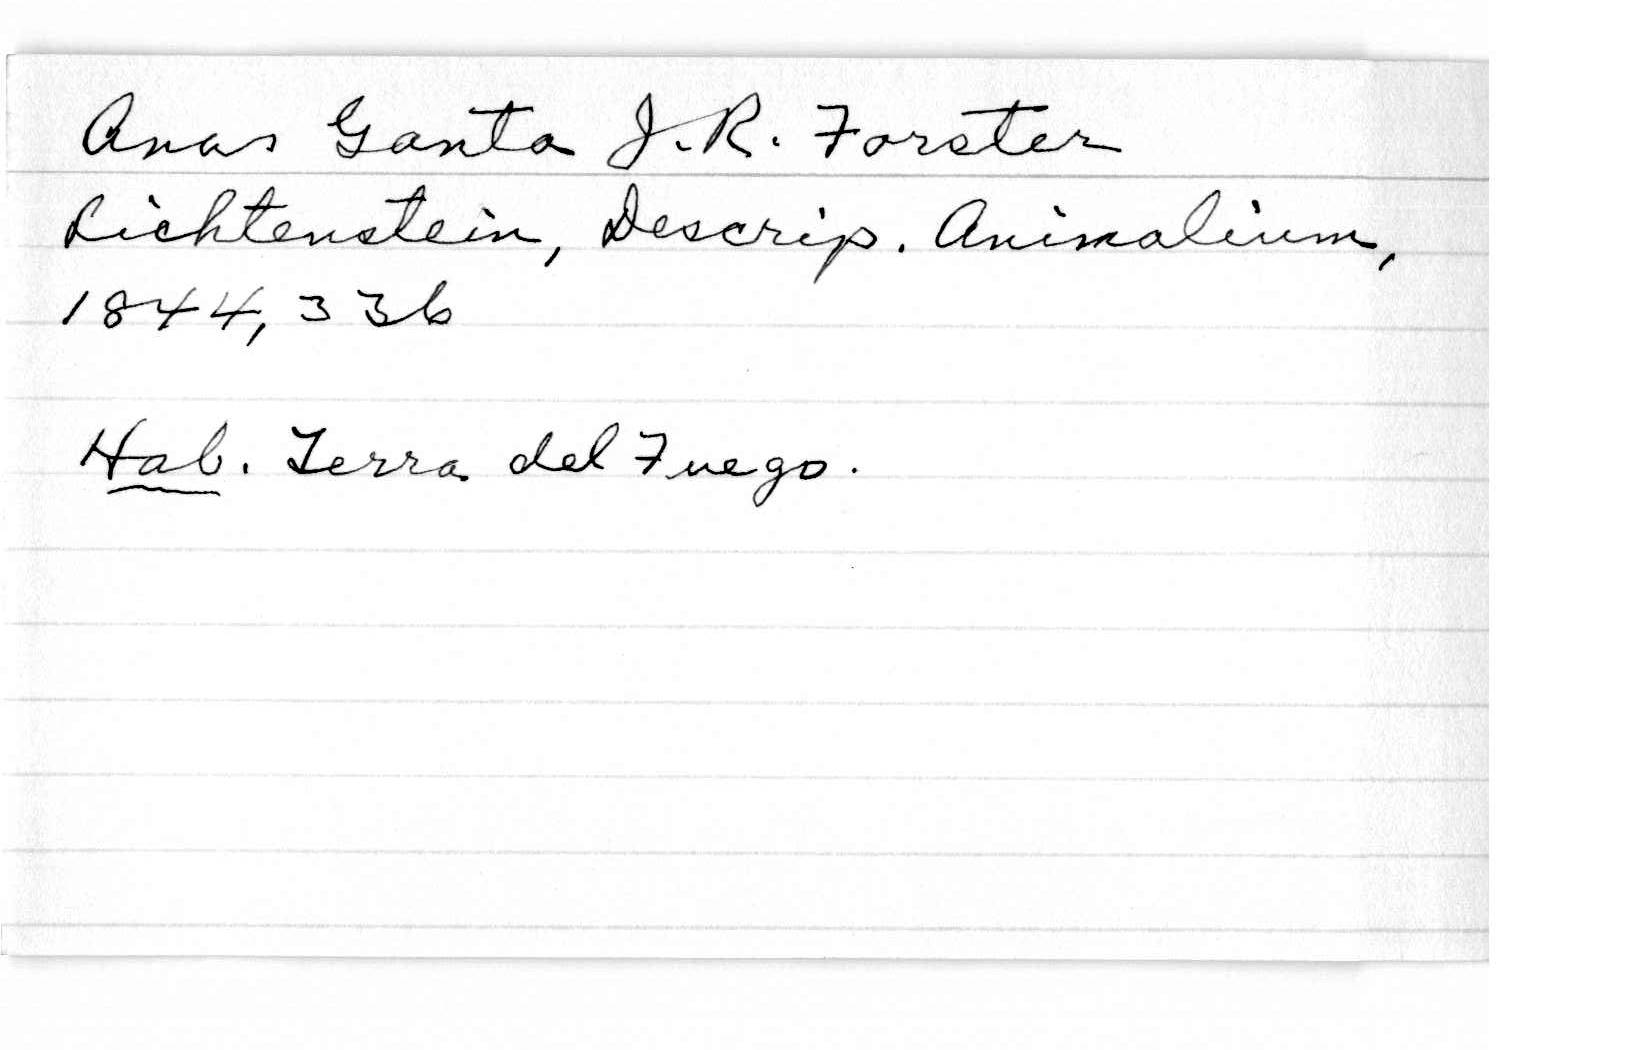 Anas Ganta J.R. Forster
Lichtenstein, Descrip. Animalium,
1844, 336
Hab. Terra del Fuego.